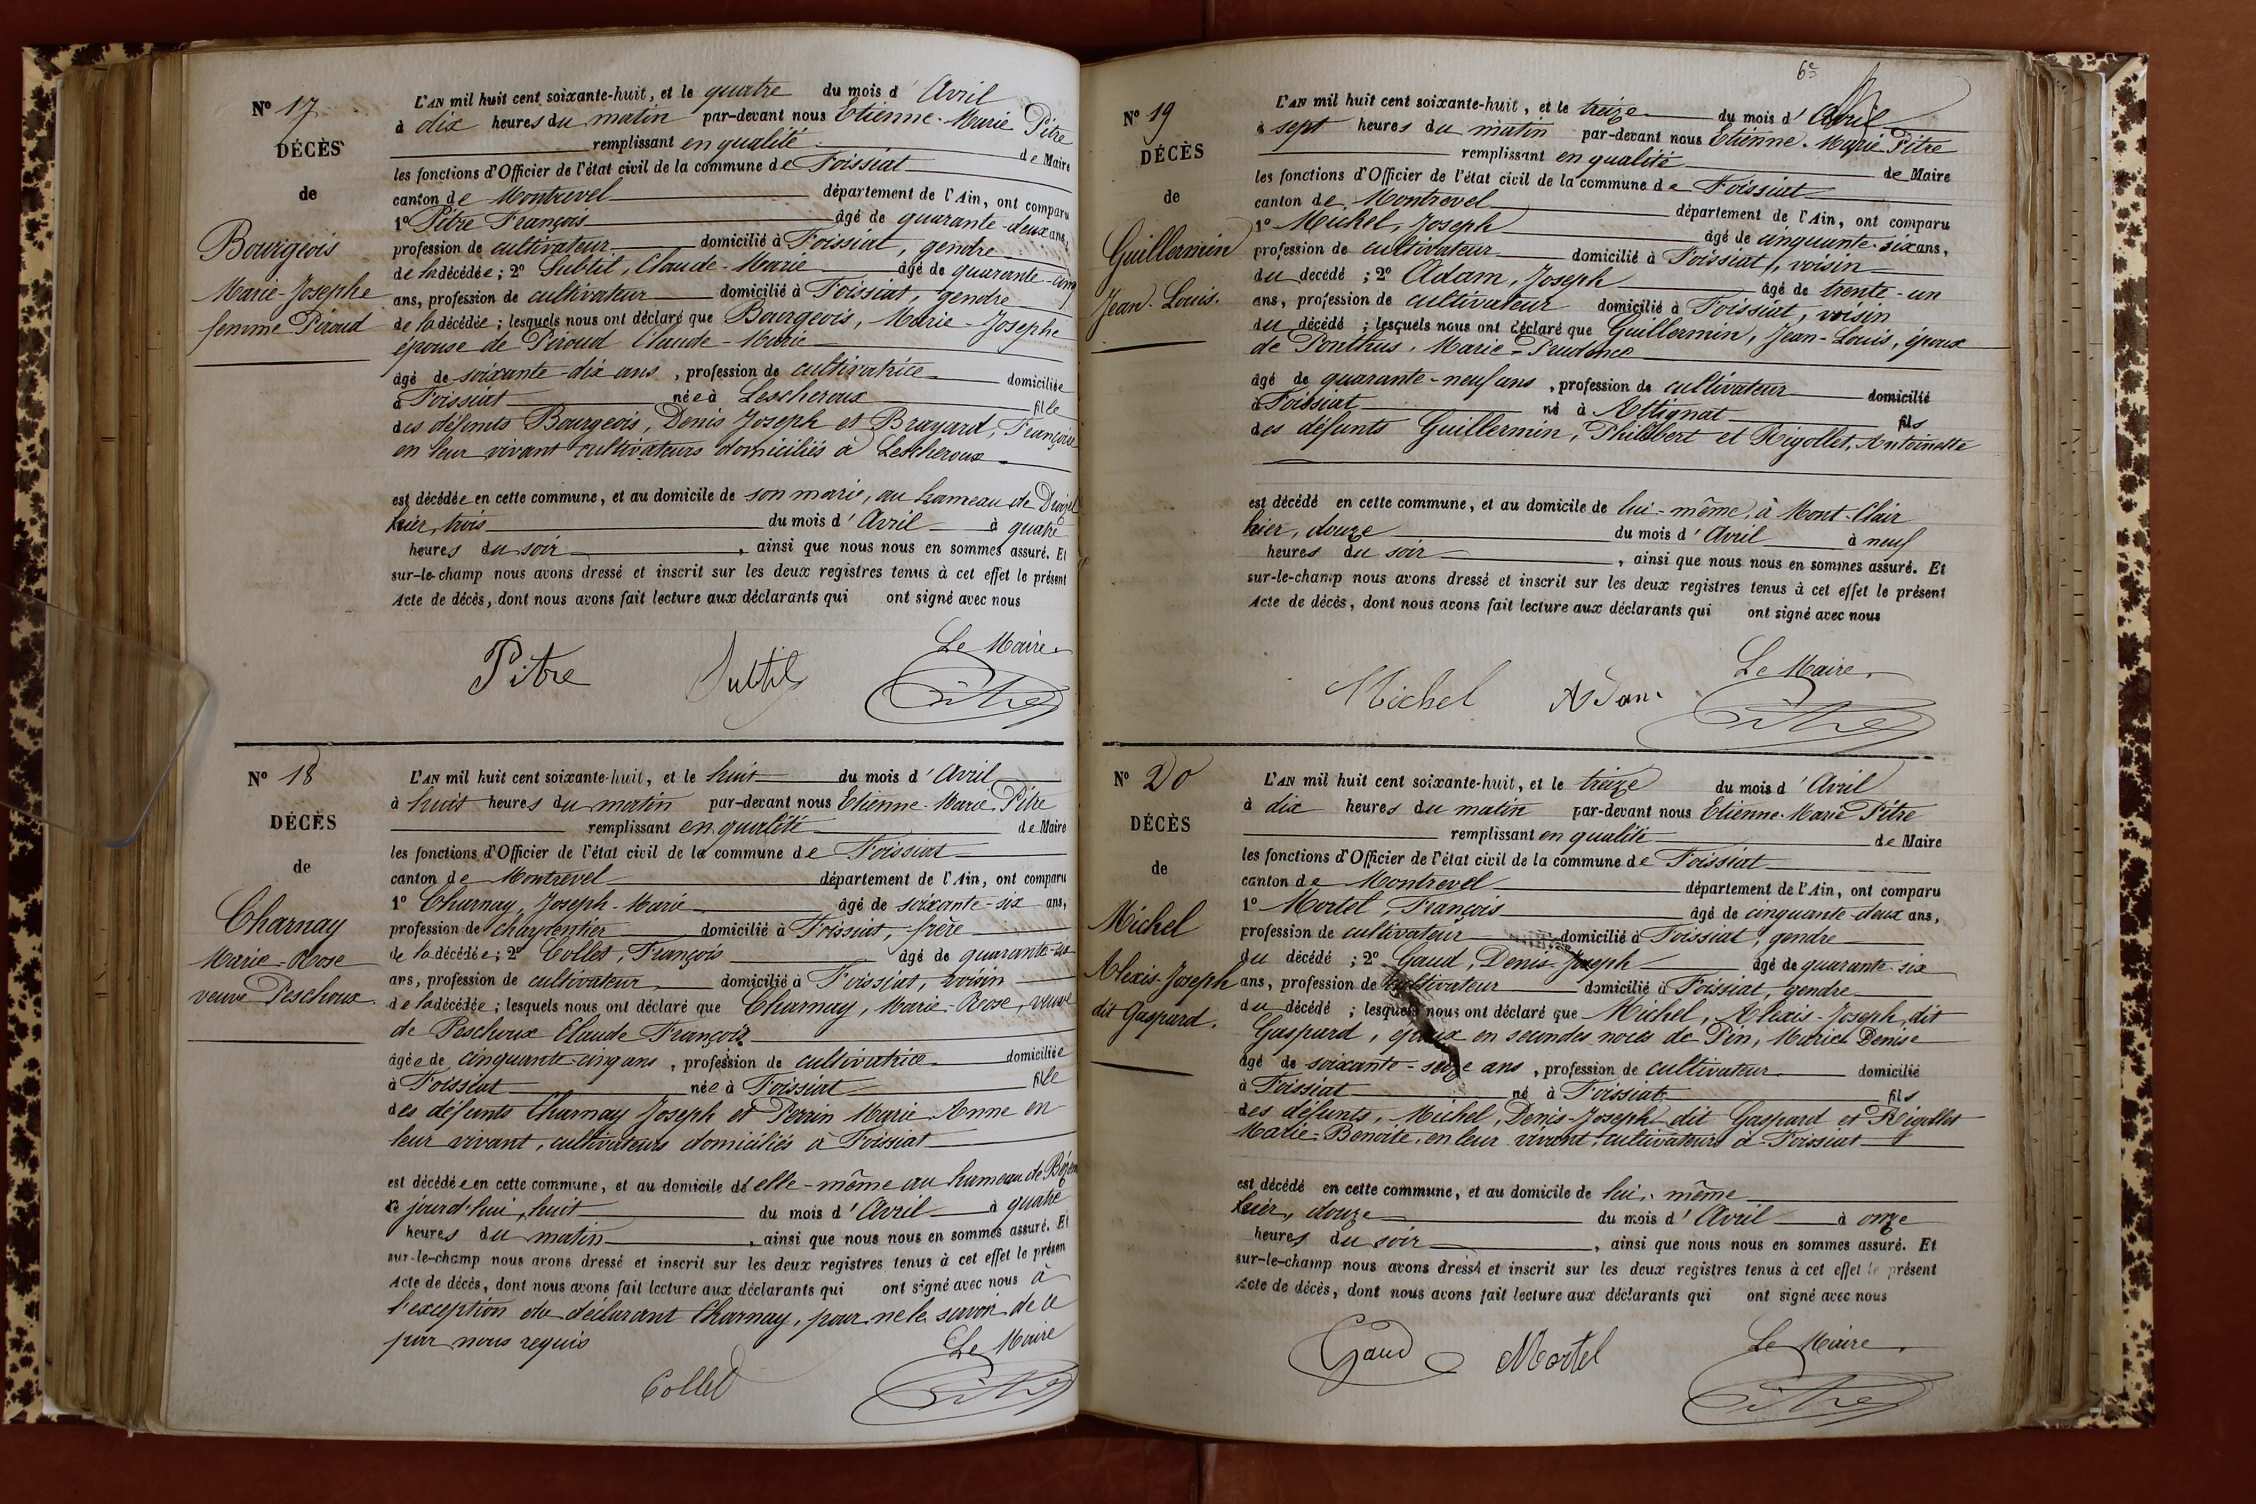 N° 17
DÉCÈS
de
Bourgeois
Marie-Josephe
femme Piroud
L'AN mil huit cent soixante-huit, et le quatre du mois d'Avril
à dix heures du matin par-devant nous Etienne-Marie Pitre
remplissant en qualité de Maire
les fonctions d'Officier de l'état civil de la commune de Foissiat
canton de Montrevel département de l'Ain, ont comparu
1° Pitre François âgé de quarante-deux ans,
profession de cultivateur domicilié à Foissiat, gendre
de la décédée; 2° Subtil, Claude-Marie âgé de quarante-cinq
ans, profession de cultivateur domicilié à Foissiat, gendre
de la décédée; lesquels nous ont déclaré que Bourgeois, Marie-Josephe
épouse de Piroud Claude-Marie
âgé de soixante-dix ans, profession de cultivatrice domiciliée
à Foissiat née à Lescheroux fille
des défunts Bourgeois, Denis Joseph et Brayard, Françoise
en leur vivant cultivateurs domiciliés à Lescheroux
est décédée en cette commune, et au domicile de son marie, au hameau de
hier, trois du mois d'Avril à quatre
heures du soir, ainsi que nous nous en sommes assuré. Et
sur-le-champ nous avons dressé et inscrit sur les deux registres tenus à cet effet le présent
Acte de décès, dont nous avons fait lecture aux déclarants qui ont signé avec nous
Le Maire
Pitre Subtil Pitre
N° 18
DÉCÈS
de
Charnay
Marie-Rose
veuve Peschoux
L'AN mil huit cent soixante-huit, et le huit du mois d'Avril
à huit heures du matin par-devant nous Etienne-Marie Pitre
remplissant en qualité de Maire
les fonctions d'Officier de l'état civil de la commune de Foissiat
canton de Montrevel département de l'Ain, ont comparu
1° Charnay, Joseph-Marie âgé de soixante-six ans,
profession de charpentier domicilié à Foissiat, frère
de la décédée; 2° Collet, François âgé de quarante-six
ans, profession de cultivateur domicilié à Foissiat, voisin
de la décédée; lesquels nous ont déclaré que Charnay, Marie-Rose, veuve
de Peschoux Claude François
âgée de cinquante-cinq ans, profession de cultivatrice domiciliée
à Foissiat née à Foissiat fille
des défunts Charnay Joseph et Perrin Marie Anne en
leur vivant, cultivateurs domiciliés à Foissiat
est décédée en cette commune, et au domicile d'elle-même au hameau de
ce jourd'hui, huit du mois d'Avril à quatre
heures du matin, ainsi que nous nous en sommes assuré. Et
sur-le-champ nous avons dressé et inscrit sur les deux registres tenus à cet effet le présen
Acte de décès, dont nous avons fait lecture aux déclarants qui ont signé avec nous à
l'exception du déclarant Charnay, pour ne le savoir de ce
par nous requis
Le Maire
Collet Pitre
6e
N° 19
DÉCÈS
de
Guillermin
Jean-Louis.
L'AN mil huit cent soixante-huit, et le treize du mois d'Avril
à sept heures du matin par-devant nous Etienne-Marie Pitre
remplissant en qualité de Maire
les fonctions d'Officier de l'état civil de la commune de Foissiat
canton de Montrevel département de l'Ain, ont comparu
1° Michel, Joseph âgé de cinquante-six ans,
profession de cultivateur domicilié à Foissiat, voisin
du décédé; 2° Adam, Joseph âgé de trente-un
ans, profession de cultivateur domicilié à Foissiat, voisin
du décédé; lesquels nous ont déclaré que Guillermin, Jean-Louis, époux
de Ponthus, Marie-Prudence
âgé de quarante-neuf ans, profession de cultivateur domicilié
à Foissiat né à Attignat fils
des défunts Guillermin, Philibert et Rigollet, Antoinette
est décédé en cette commune, et au domicile de lui-même, à Mont-Clair
hier, douze du mois d'Avril à neuf
heures du soir, ainsi que nous nous en sommes assuré. Et
sur-le-champ nous avons dressé et inscrit sur les deux registres tenus à cet effet le présent
Acte de décès, dont nous avons fait lecture aux déclarants qui ont signé avec nous
Le Maire
Michel Adam Pitre
N° 20
DÉCÈS
de
Michel
Alexis-Joseph
dit Gaspard.
L'AN mil huit cent soixante-huit, et le treize du mois d'Avril
à dix heures du matin par-devant nous Etienne-Marie Pitre
remplissant en qualité de Maire
les fonctions d'Officier de l'état civil de la commune de Foissiat
canton de Montrevel département de l'Ain, ont comparu
1° Mortel, François âgé de cinquante-deux ans,
profession de cultivateur domicilié à Foissiat, gendre
du décédé; 2° Gaud, Denis-Joseph âgé de quarante-six
ans, profession de cultivateur domicilié à Foissiat, gendre
du décédé; lesquels nous ont déclaré que Michel, Alexis-Joseph, dit
Gaspard, époux en secondes noces de Pin, Marie Denise
âgé de soixante-seize ans, profession de cultivateur domicilié
à Foissiat né à Foissiat fils
des défunts, Michel, Denis-Joseph dit Gaspard et Rigollet
Marie-Benoite, en leur vivant, cultivateurs à Foissiat
est décédé en cette commune, et au domicile de lui-même
hier, douze du mois d'Avril à onze
heures du soir, ainsi que nous nous en sommes assuré. Et
sur-le-champ nous avons dressé et inscrit sur les deux registres tenus à cet effet le présent
Acte de décès, dont nous avons fait lecture aux déclarants qui ont signé avec nous
Le Maire
Gaud Mortel Pitre